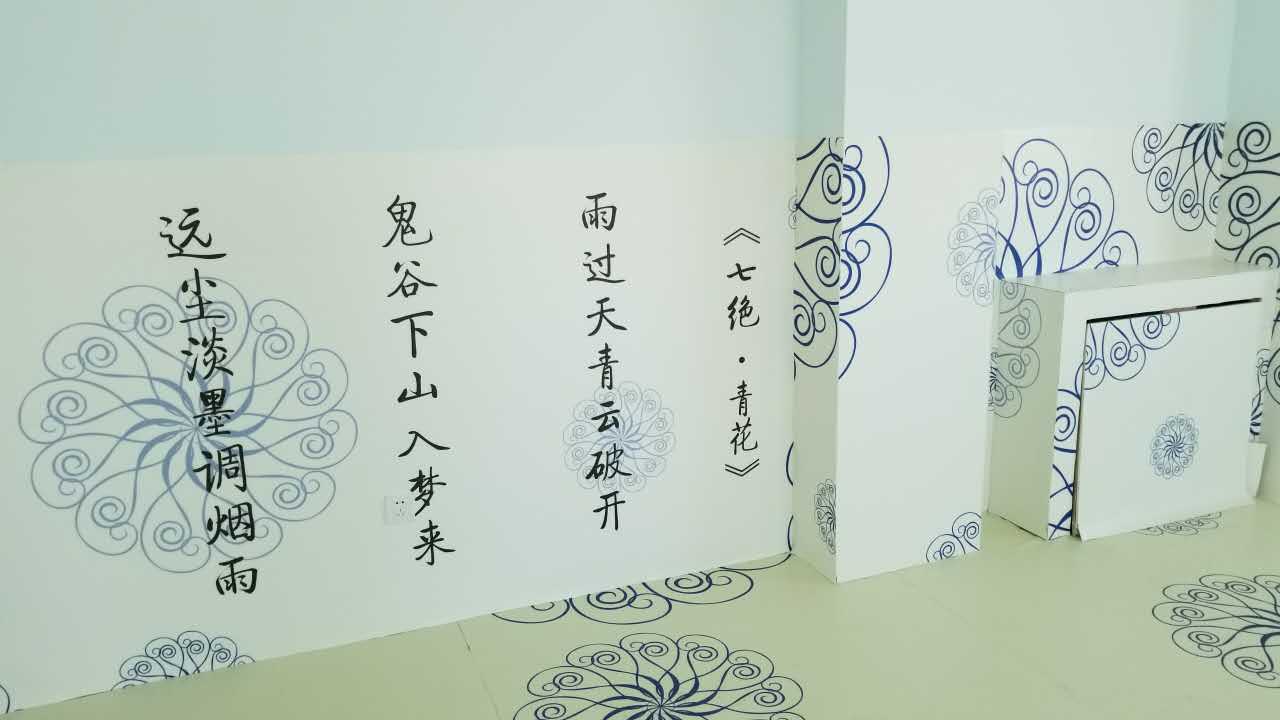 《七绝·青花》
雨过天青云破开
鬼谷下山入梦来
远尘淡墨调烟雨